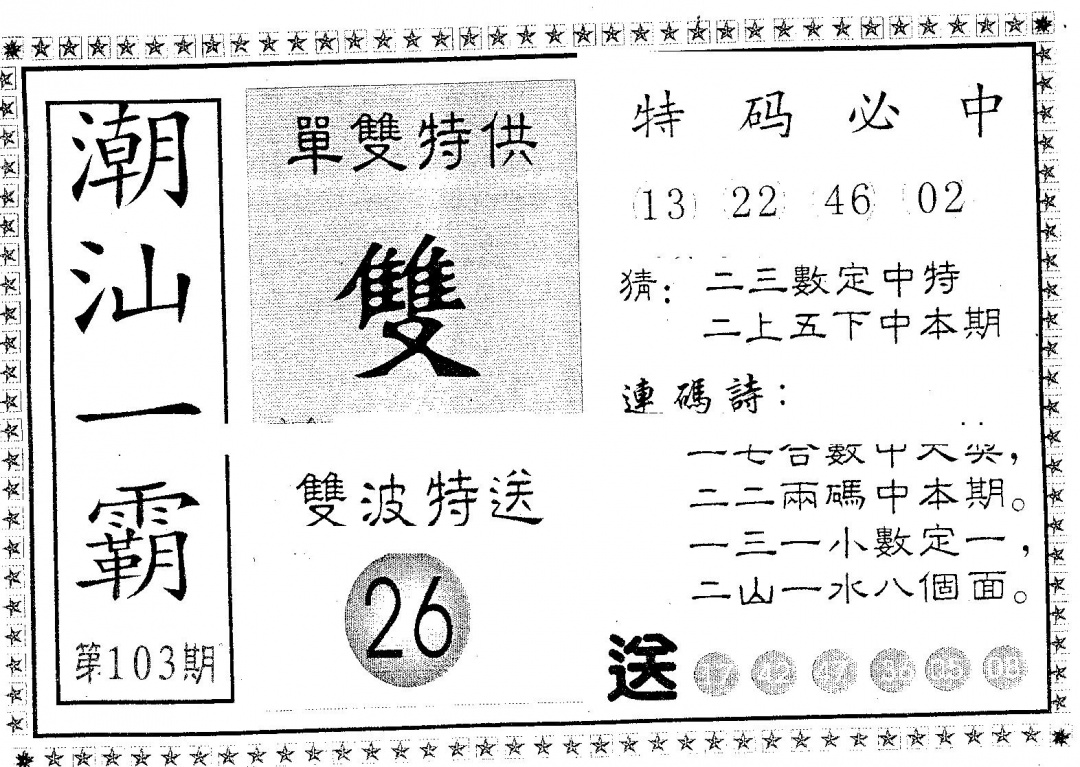 潮汕一霸
第103期
單雙特供
雙
雙波特送
26
特码必中
13 22 46 02
猜：二三數定中特
二上五下中本期
連碼詩：
一七合數中大獎，
二二兩碼中本期。
一三一小數定一，
二山一水八個面。
送 42 47 36 05 08